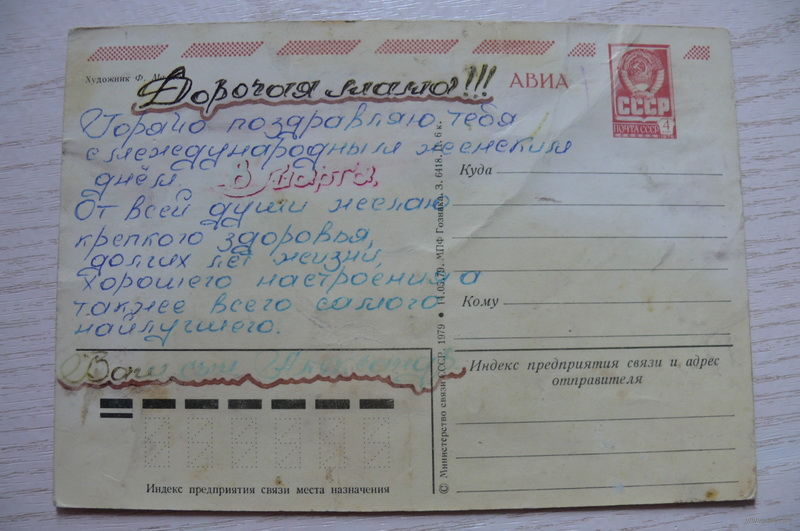 Художник Ф.
Дорогая мама!!!
АВИА
СССР
ПОЧТА СССР 4
Горячо поздравляю тебя
с международным женским
днём 8 марта.
От всей души желаю
крепкого здоровья,
долгих лет жизни,
хорошего настроения а
также всего самого
найлучшего.
Ваш сын
Куда
Кому
Индекс предприятия связи и адрес
отправителя
Индекс предприятия связи места назначения
© Министерство связи СССР, 1979 ● 11.05.79. МПФ Гознака. З. 6418. Ц. 6 к.